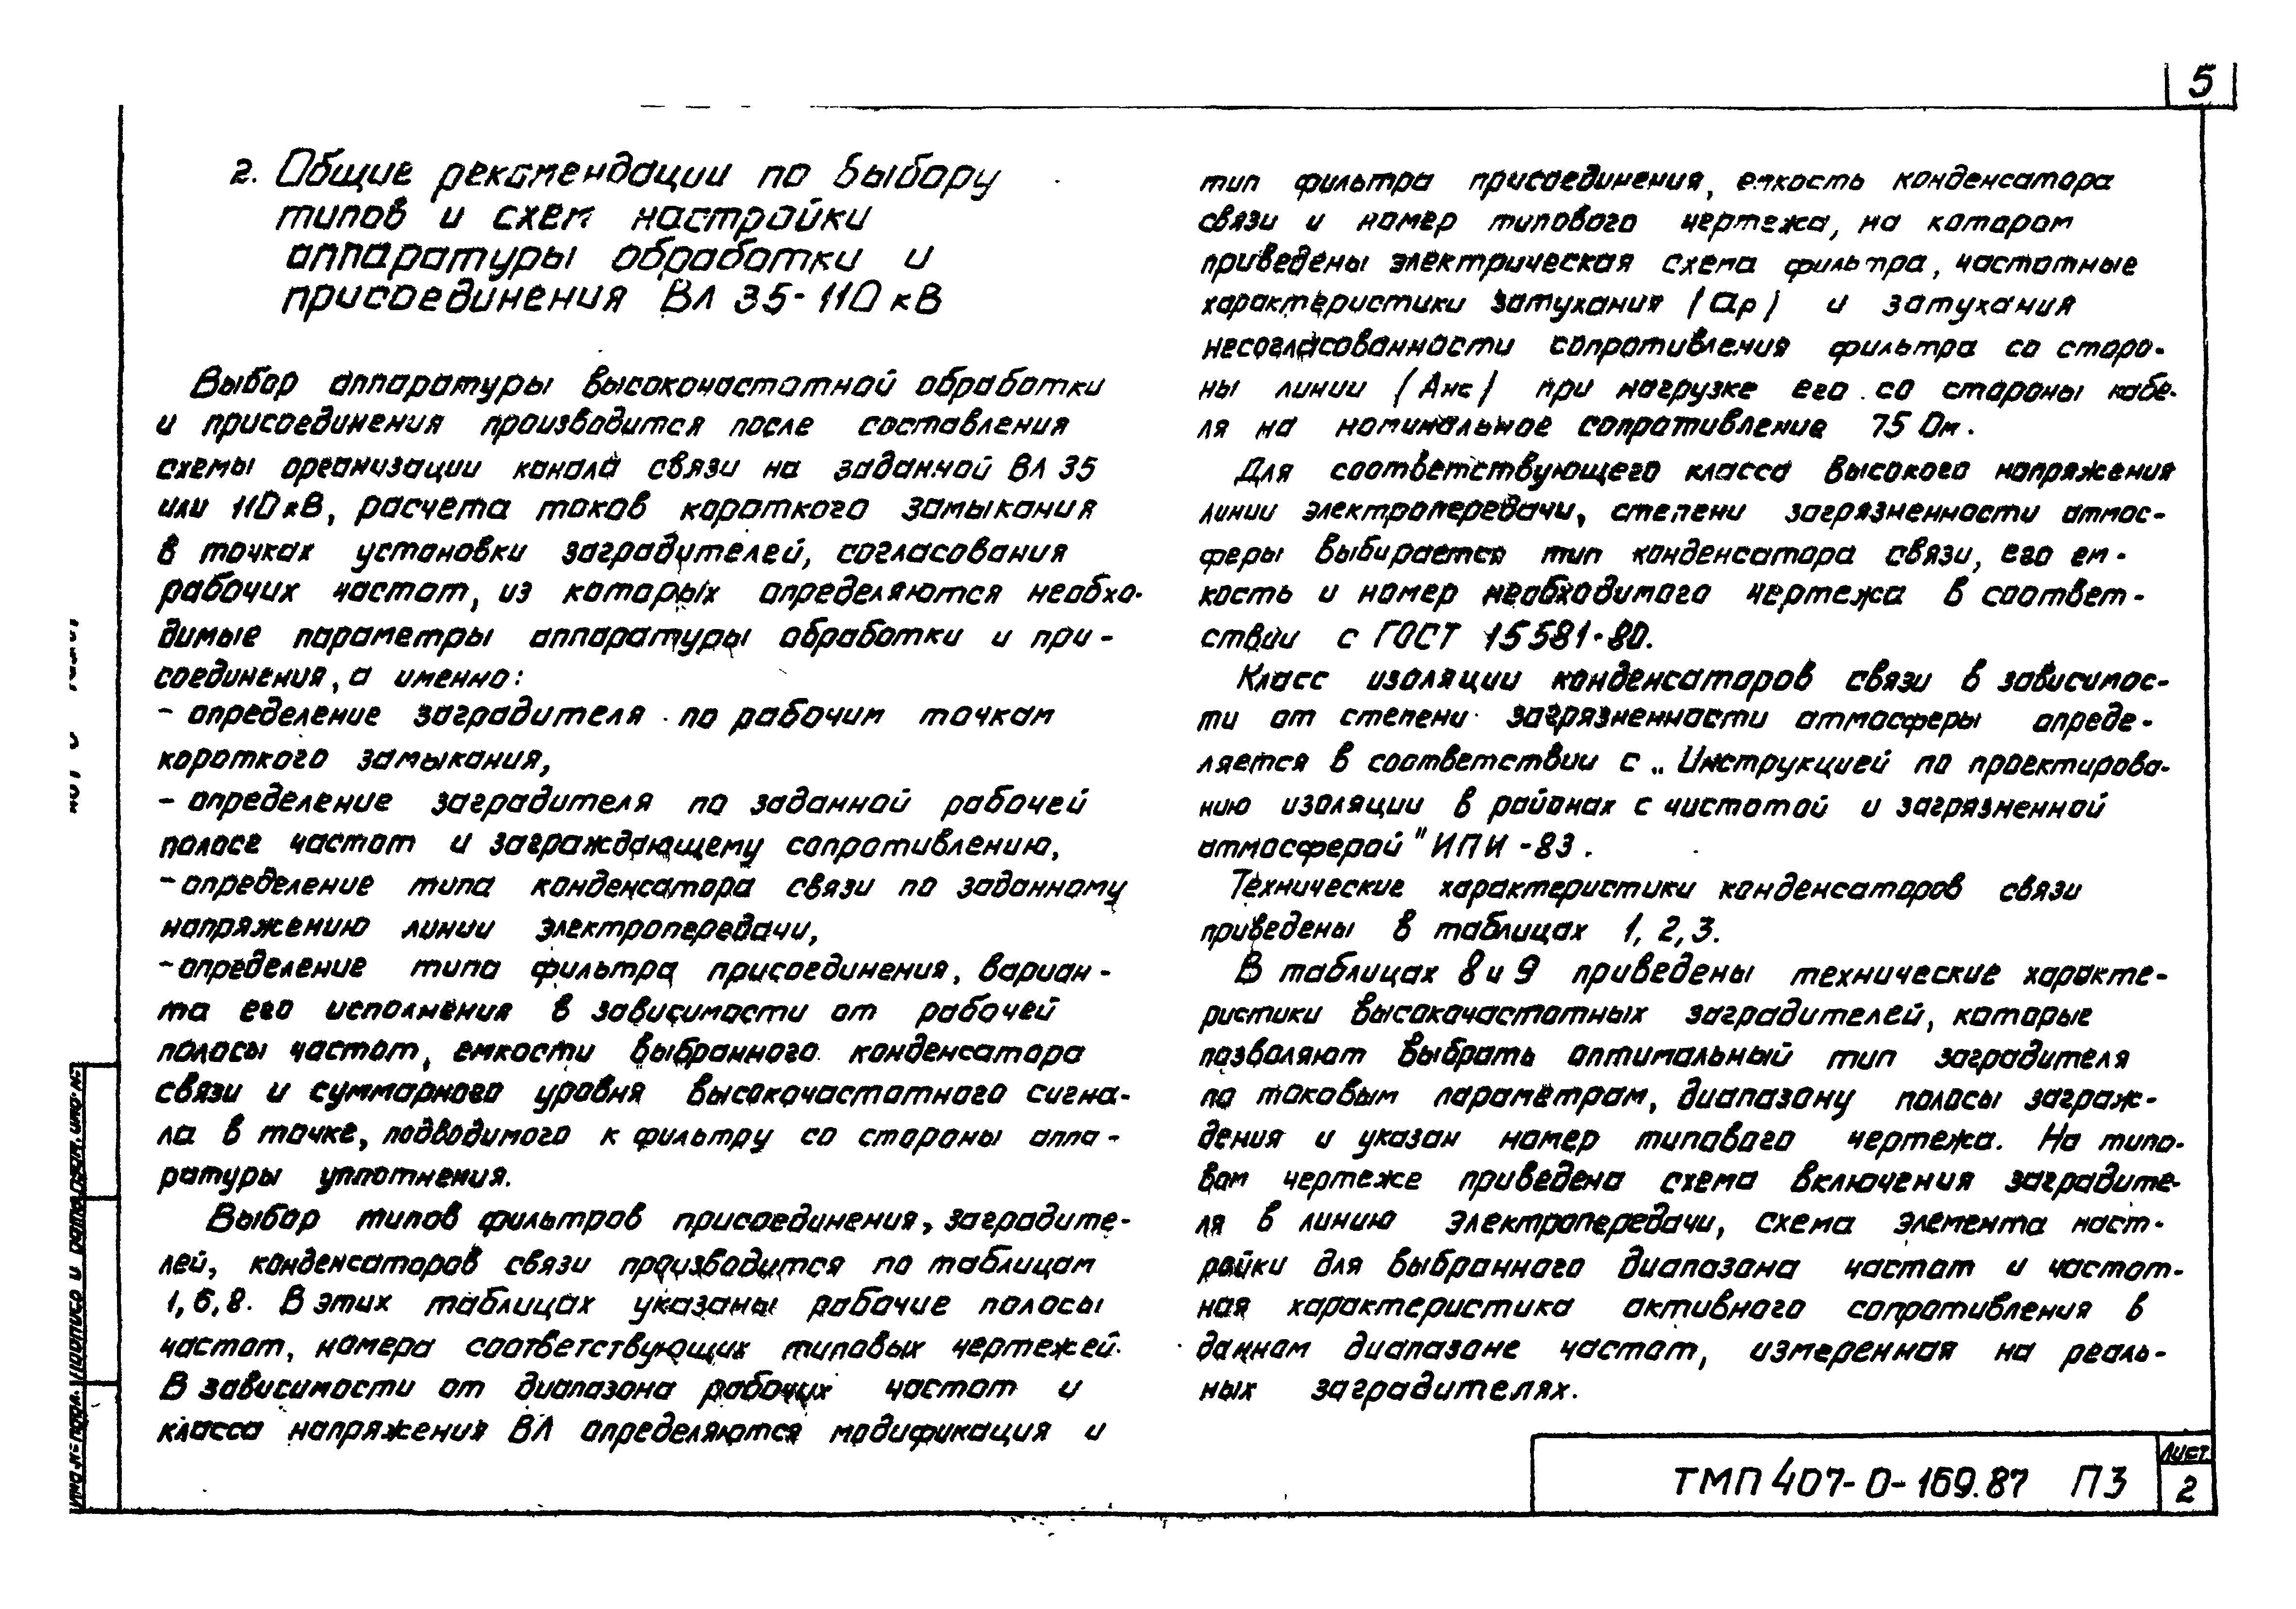 5
2. Общие рекомендации по выбору
типов и схем настройки
аппаратуры обработки и
присоединения ВЛ 35-110 кВ
Выбор аппаратуры высокочастотной обработки
и присоединения производится после составления
схемы организации канала связи на заданной ВЛ 35
или 110 кВ, расчета токов короткого замыкания
в точках установки заградителей, согласования
рабочих частот, из которых определяются необхо-
димые параметры аппаратуры обработки и при-
соединения, а именно:
- определение заградителя по рабочим точкам
короткого замыкания,
- определение заградителя по заданной рабочей
полосе частот и заграждающему сопротивлению,
- определение типа конденсатора связи по заданному
напряжению линии электропередачи,
- определение типа фильтра присоединения, вариан-
та его исполнения в зависимости от рабочей
полосы частот, емкости выбранного конденсатора
связи и суммарного уровня высокочастотного сигна-
ла в точке, подводимого к фильтру со стороны аппа-
ратуры уплотнения.
Выбор типов фильтров присоединения, заградите-
лей, конденсаторов связи производится по таблицам
1, 6, 8. В этих таблицах указаны рабочие полосы
частот, номера соответствующих типовых чертежей.
В зависимости от диапазона рабочих частот и
класса напряжения ВЛ определяются модификация и
тип фильтра присоединения, емкость конденсатора
связи и номер типового чертежа, на котором
приведены электрическая схема фильтра, частотные
характеристики затухания (ар) и затухания
несогласованности сопротивления фильтра со сторо-
ны линии (Анс) при нагрузке его со стороны кабе-
ля на номинальное сопротивление 75 Ом.
Для соответствующего класса высокого напряжения
линии электропередачи, степени загрязненности атмос-
феры выбирается тип конденсатора связи, его ем-
кость и номер необходимого чертежа в соответ-
ствии с ГОСТ 15581-80.
Класс изоляции конденсаторов связи в зависимос-
ти от степени загрязненности атмосферы опреде-
ляется в соответствии с „Инструкцией по проектирова-
нию изоляции в районах с чистотой и загрязненной
атмосферой" ИПИ-83.
Технические характеристики конденсаторов связи
приведены в таблицах 1, 2, 3.
В таблицах 8 и 9 приведены технические характе-
ристики высокочастотных заградителей, которые
позволяют выбрать оптимальный тип заградителя
по токовым параметрам, диапазону полосы заграж-
дения и указан номер типового чертежа. На типо-
вом чертеже приведена схема включения заградите-
ля в линию электропередачи, схема элемента наст-
ройки для выбранного диапазона частот и частот-
ная характеристика активного сопротивления в
данном диапазоне частот, измеренная на реаль-
ных заградителях.
ТМП 407-0-169.87 ПЗ
Лист
2
Инв.№ подл. Подпись и дата